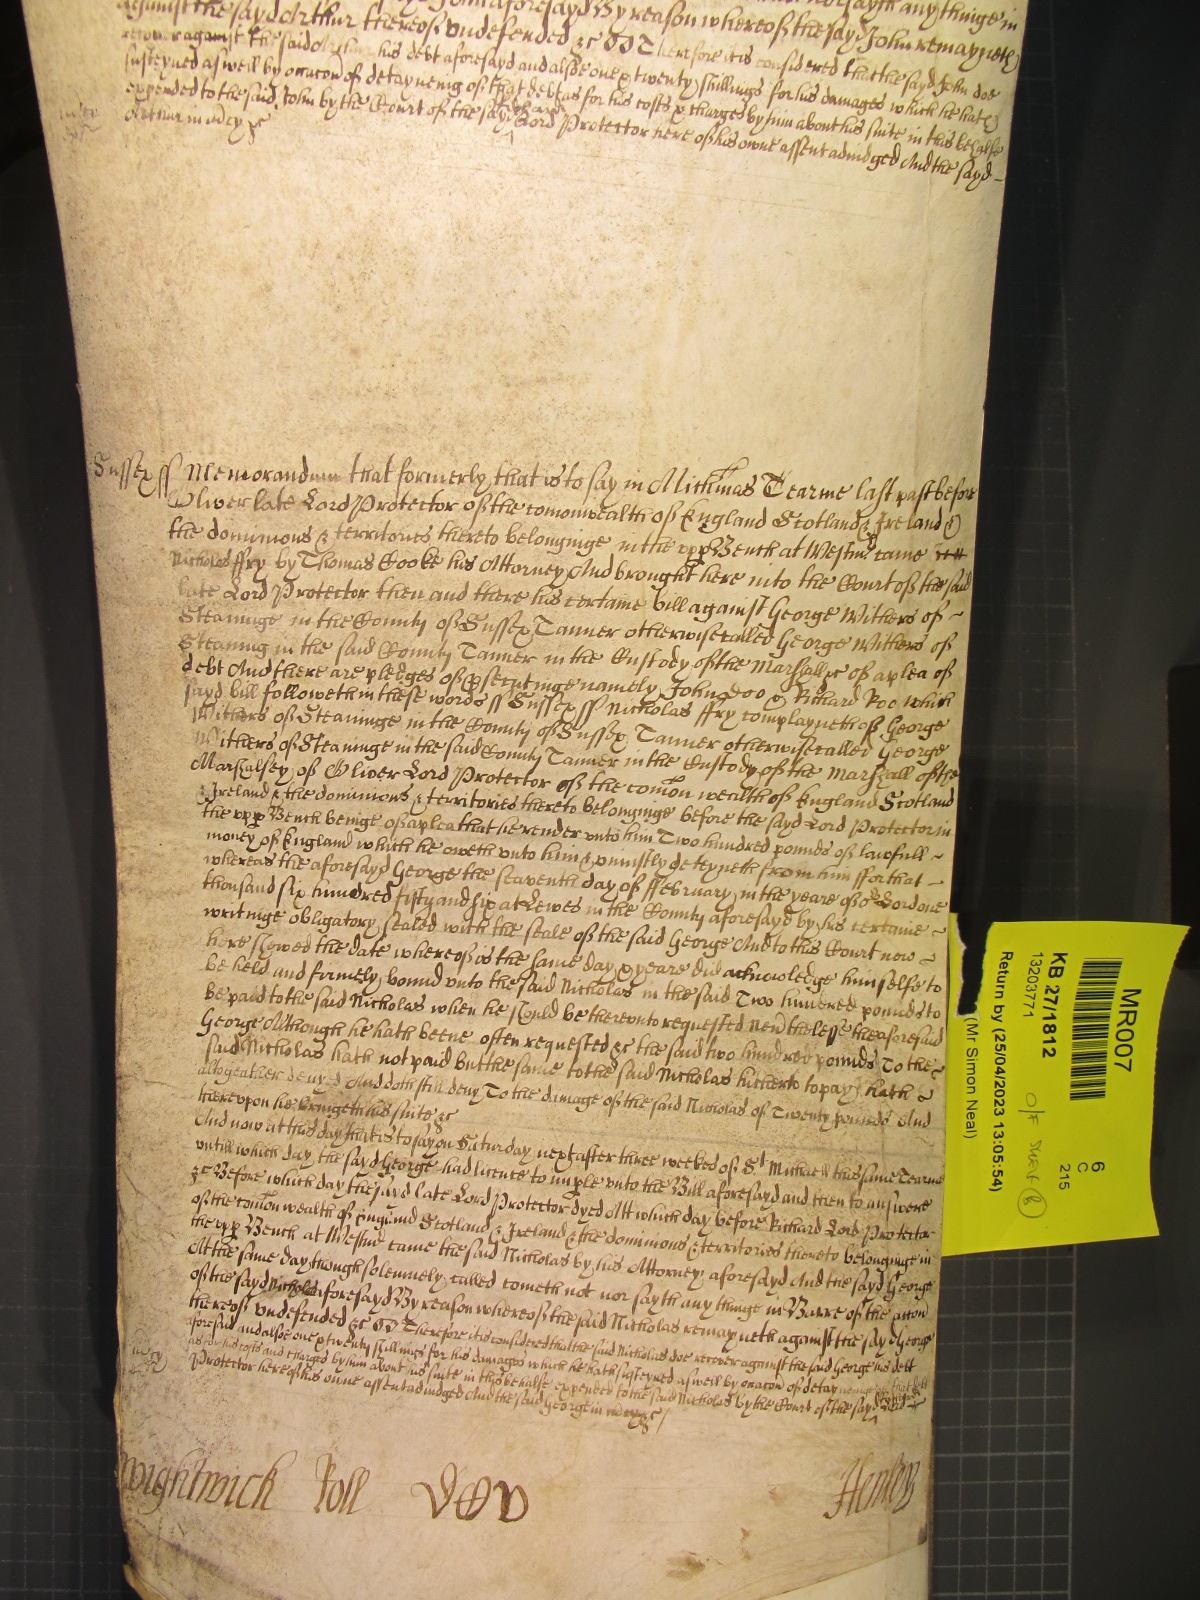 John aforesayd By reason whereof the say John remayneth
against the sayd Arthur thereof undefended &c Therefore it is considered that the sayd John doe
recover against the said Arthur his debt aforesayd and alsoe one & twenty shillings for his damages which he hath
susteyned aswell by occacon of detayneing of that debt as for his costs & charges by him about his suite in this behalfe
expended to the said John by the Court of the sayd Richard Lord Protector here of his owne assent adiudged And the sayd
Arthur in mercy &c
Sussex ss Memorandum that formerly that is to say in Michmas Tearme last past before
Oliver late Lord Protector of the comonwealth of England Scotland & Ireland &
the dominions & territories thereto belonginge in the upp Bench at Westmr came
Nicholas ffry by Thomas Cooke his Attorney And brought here into the Court of the said
late Lord Protector then and there his certaine bill against George Withers of
Steaninge in the County of Sussex Tanner otherwise called George Withers of
Steaning in the said County Tanner in the Custody of the Marshall &c of a plea of
debt And there are pledges of psecutinge namely John Doo & Richard Roo which
sayd bill followeth in these words ss Sussex ss Nicholas ffry complayneth of George
Withers of Steaninge in the County of Sussex Tanner otherwise called George
Withers of Steaninge in the said County Tanner in the Custody of the Marshall of the
Marshalsey of Oliver Lord Protector of the comon wealth of England Scotland
& Ireland & the dominions & territories thereto belonginge before the sayd Lord Protector in
the upp Bench beinge of a plea that he render unto him Two hundred pounds of lawfull
money of England which he oweth unto him & uniustly deteyneth from him ffor that
whereas the aforesayd George the seaventh day of ffebruary in the yeare of or Lord one
thousand six hundred fifty and six at Lewes in the County aforesayd by his certaine
writinge obligatory sealed with the seale of the said George And to this Court now
here shewed the date whereof is the same day & yeare did acknowledge himselfe to
be held and firmely bound unto the said Nicholas in the said Two hundred pounds to
be paid to the said Nicholas when he should be thereunto requested Nevthelesse the aforesaid
George Although he hath beene often requested &c the said two hundred pounds To the
said Nicholas hath not paid but the same to the said Nicholas hitherto to pay hath
altogeather denyed And doth still deny To the damage of the said Nicholas of Twenty pounds And
thereupon he bringeth his suite &c
And now at this day that is to say on Saturday next after three weekes of St Michaell this same Tearme
untill which day the sayd George had licence to imple unto the Bill aforesayd and then to answere
&c Before which day the sayd late Lord Protector dyed At which day before Richard Lord Protector
of the comon wealth of England Scotland & Ireland & the dominions & territories thereto belonginge in
the upp Bench at Westmr came the said Nicholas by his Attorney aforesayd And the sayd George
At the same day though solemnely called cometh not nor sayth any thinge in Barre of the accon
of the sayd Nicholas aforesayd By reason whereof the said Nicholas remayneth against the sayd George
thereof undefended &c Therefore it is considered that the said Nicholas doe recover against the said George his debt
aforesaid and alsoe one & twenty shillings for his damages which he hath susteyned aswell by occacon of detayneinge of that debt
as for his costs and charges by him about his suite in this behalfe expended to the said Nicholas by the Court of the sayd Richard Lord
Protector here of his owne assent adiudged And the said George in mercy &c
Wightwick Roll Henley
MR007
KB 27/1812
13203771
Return by (25/04/2023 13:05:54)
(Mr Simon Neal)
6
C
215